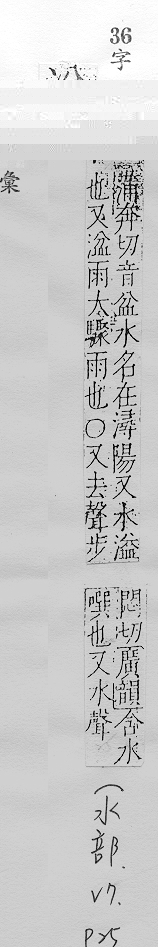 36
字
彙
蒲奔切音盆水名在潯陽又水溢
也又湓雨太驟雨也○又去聲步
悶切廣韻含水
噀也又水聲
(水部.
V7.
P25